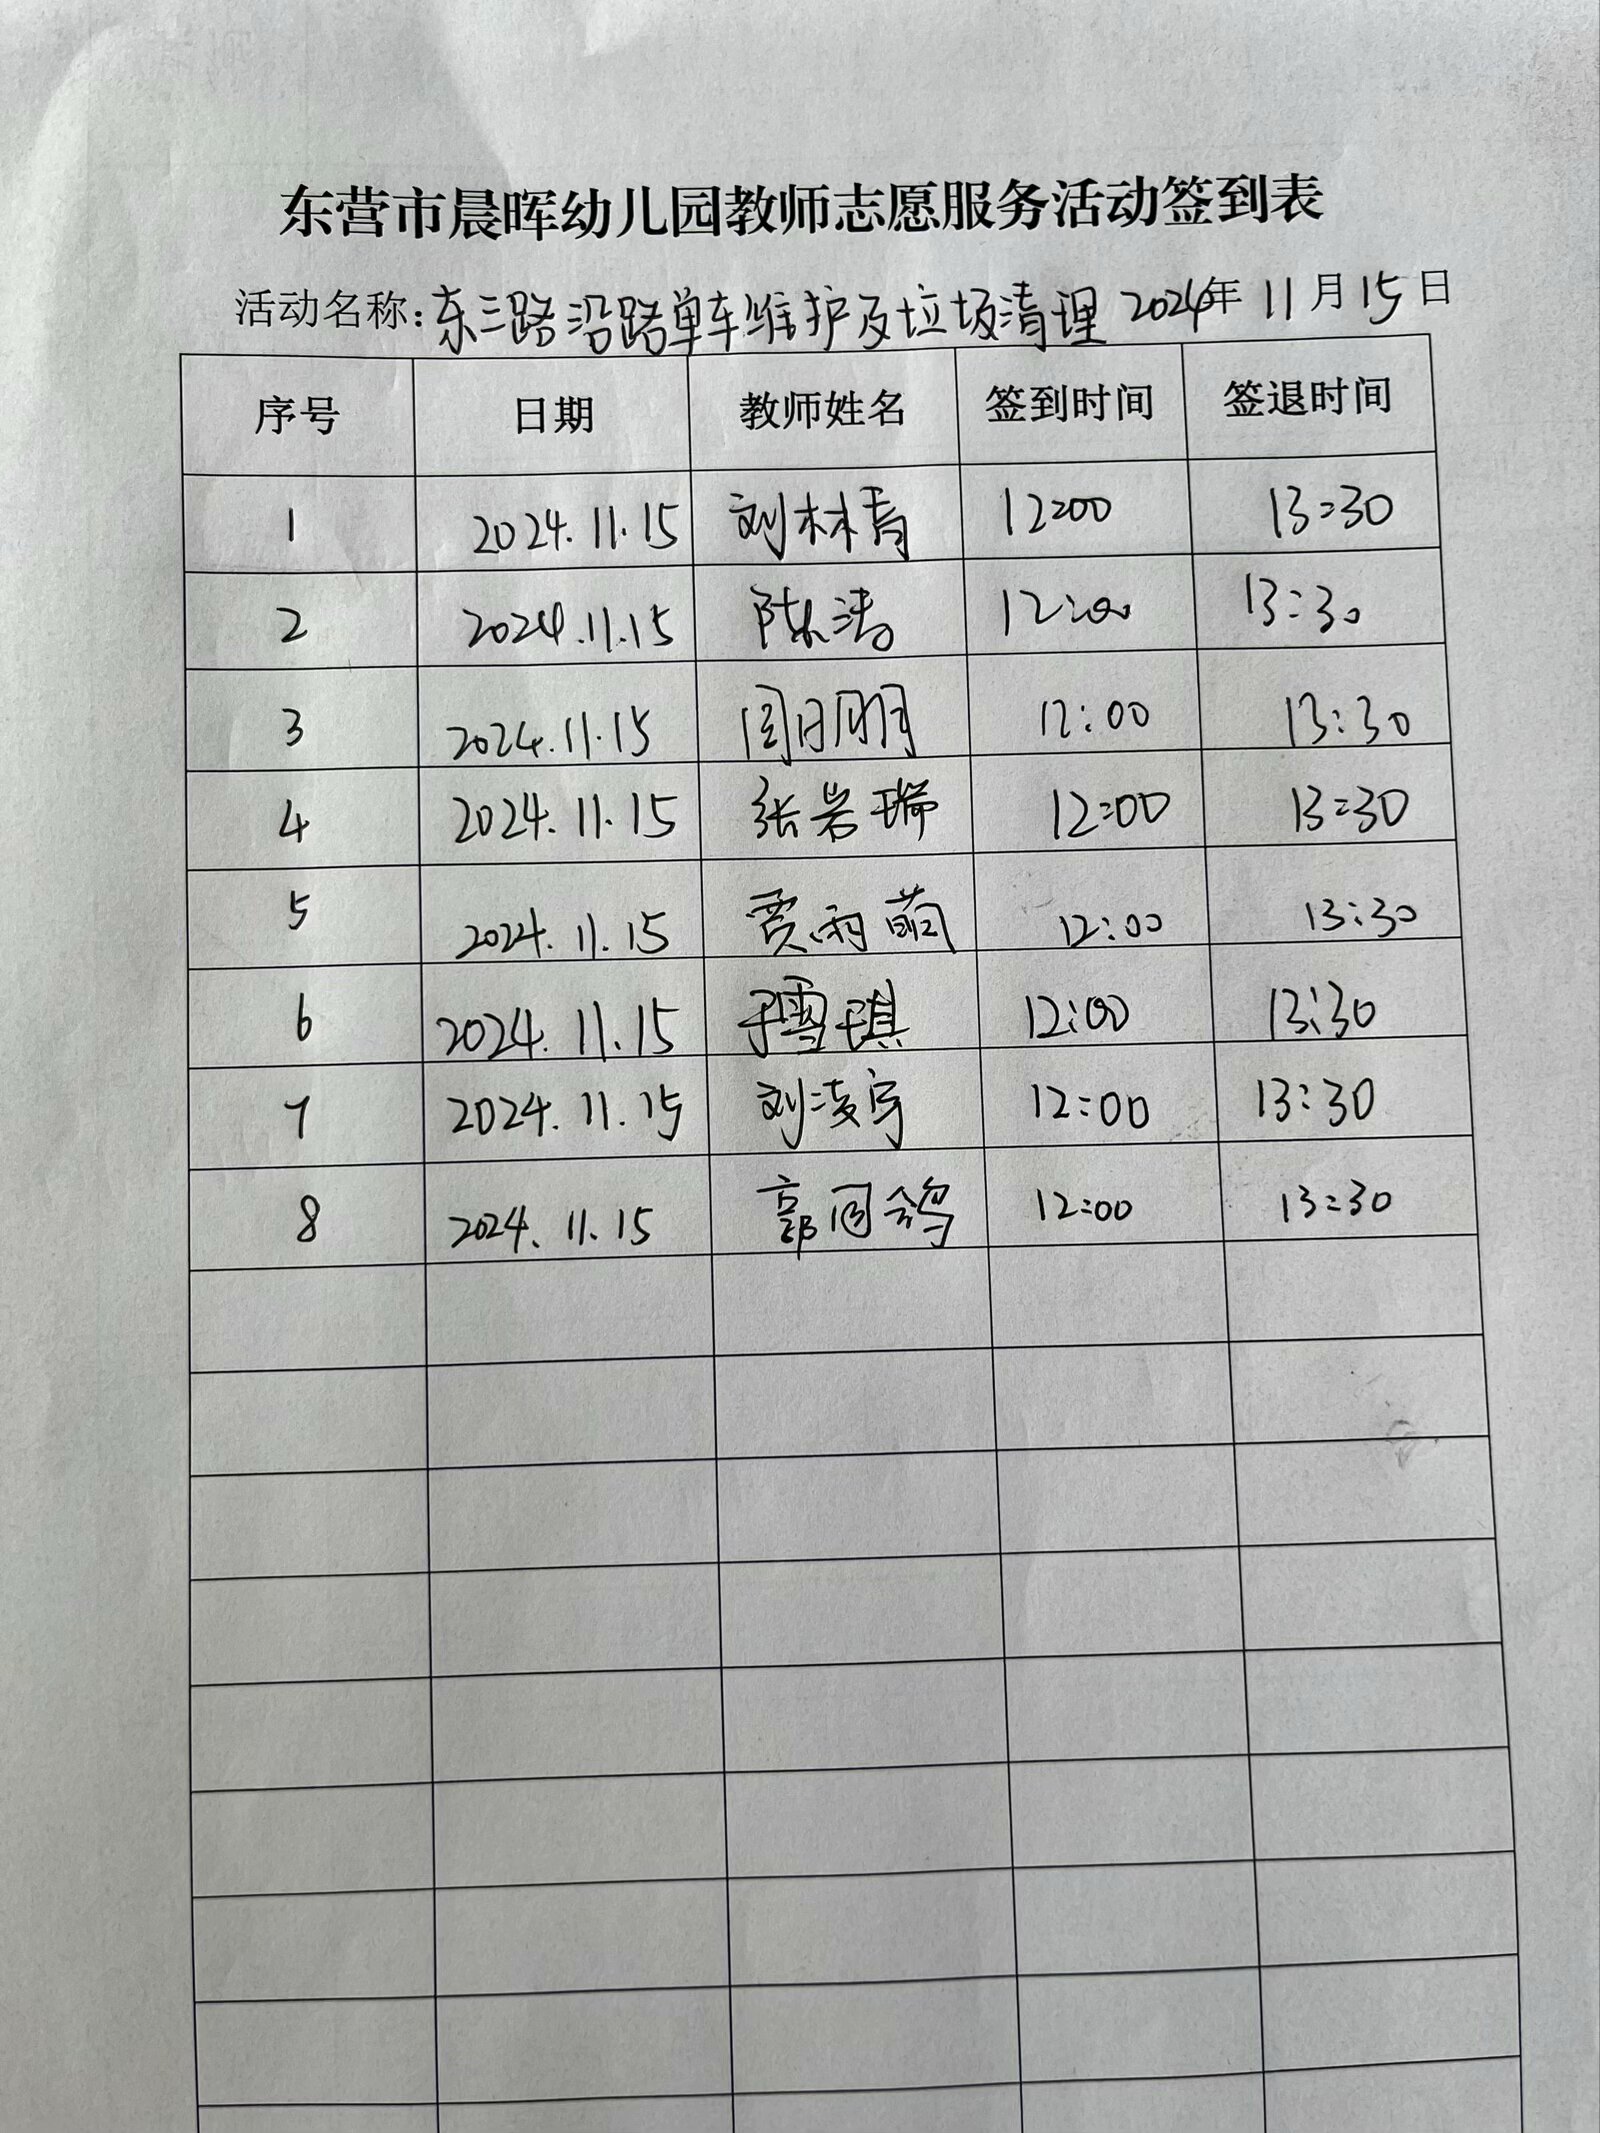 东营市晨晖幼儿园教师志愿服务活动签到表
活动名称:东三路沿路单车维护及垃圾清理 2024年 11月 15日
序号 日期 教师姓名 签到时间 签退时间
1 2024.11.15 刘林青 12:00 13:30
2 2024.11.15 陈洁 12:00 13:30
3 2024.11.15 12:00 13:30
4 2024.11.15 张岩瑞 12:00 13:30
5 2024.11.15 贾雨萌 12:00 13:30
6 2024.11.15 于雪琪 12:00 13:30
7 2024.11.15 刘凌宇 12:00 13:30
8 2024.11.15 12:00 13:30